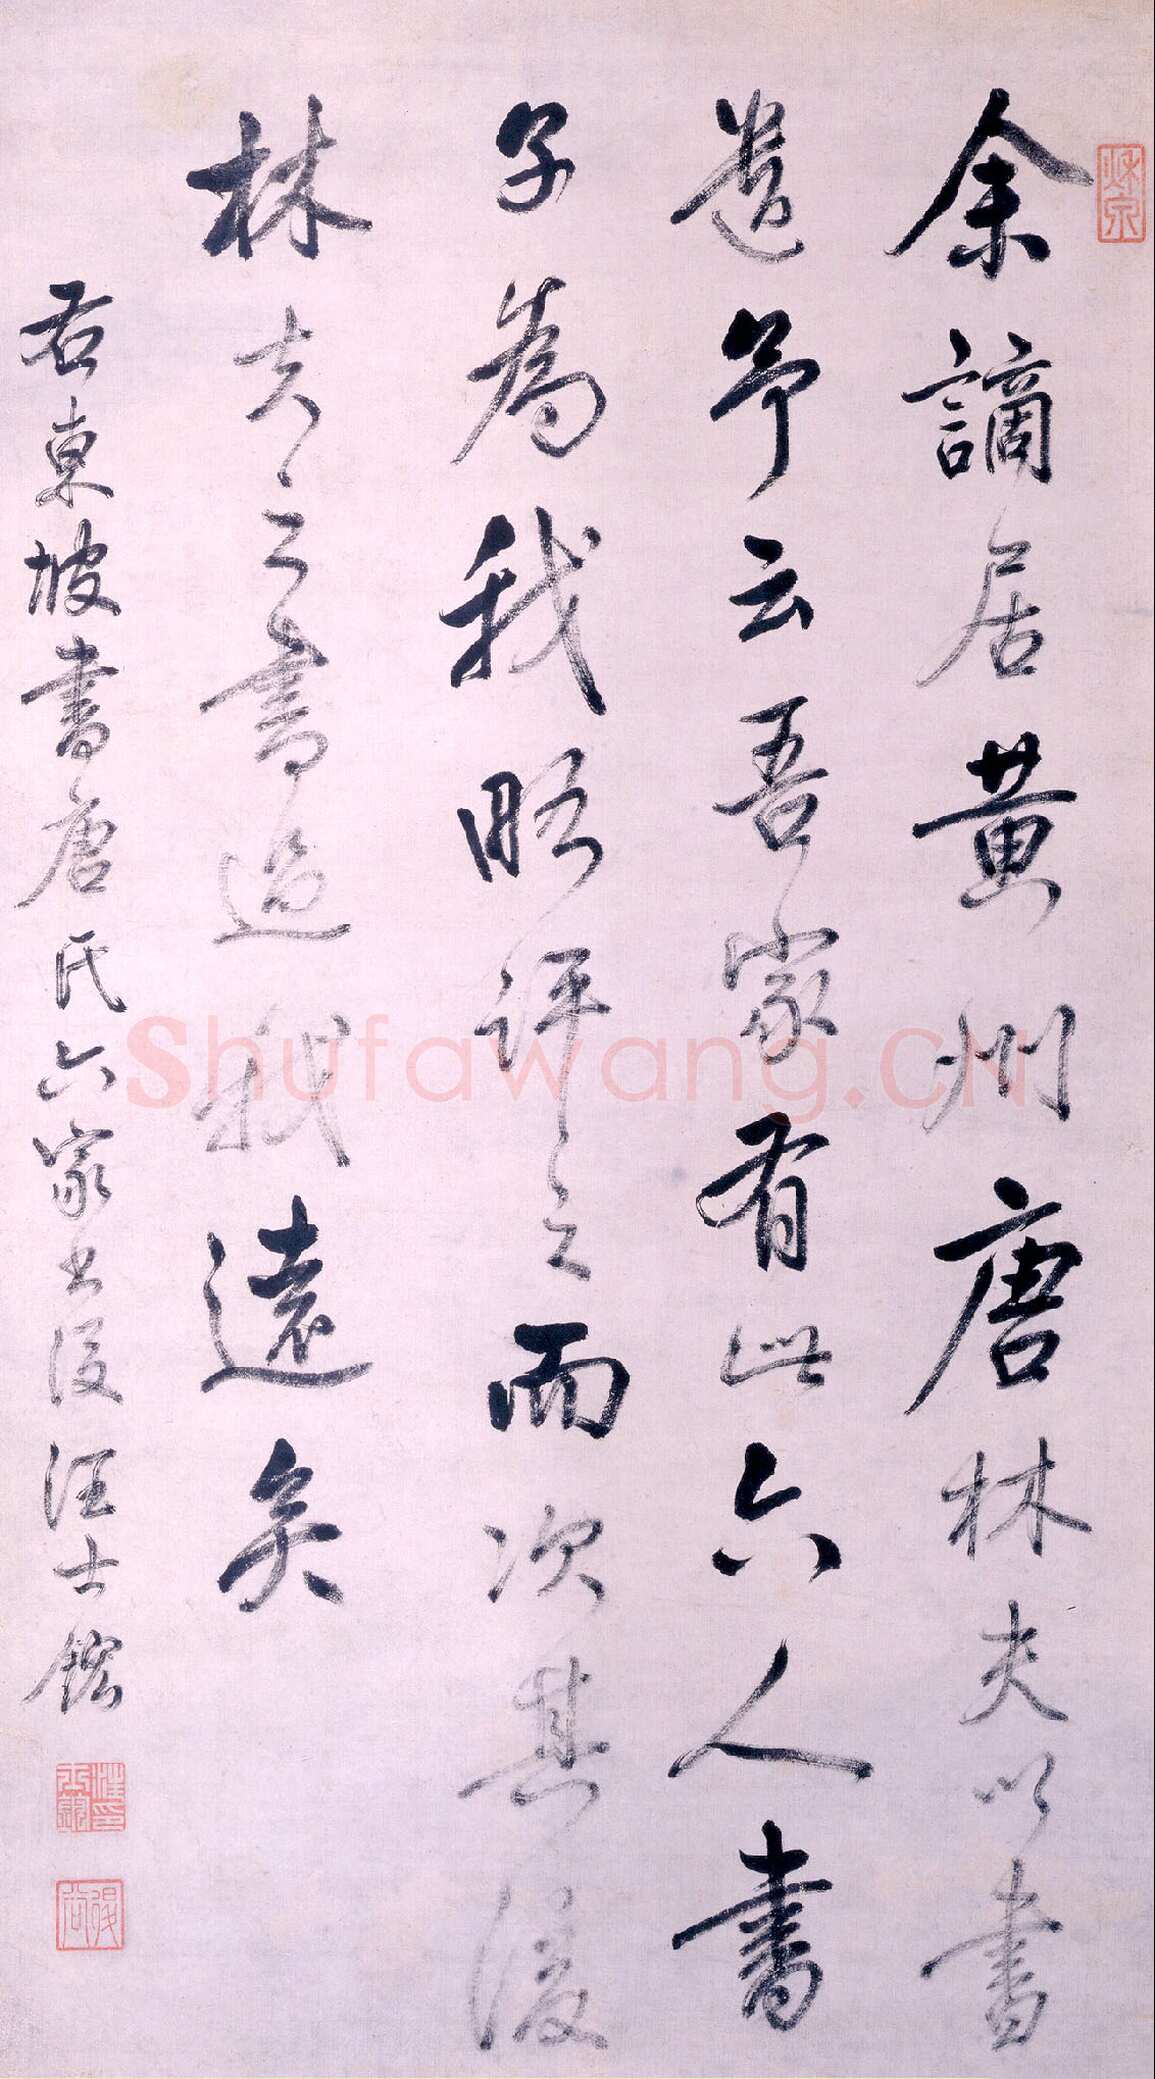 余謫居黄州唐林夫以書
遺予云吾家有此六人書
子為我略評之而次其後
林夫之書過我遠矣
右東坡書唐氏六家書後汪士鋐
Shufawang.CN